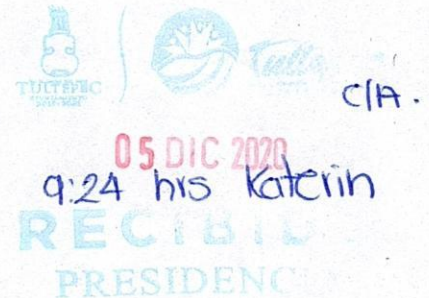 TULTEPEC
C/A.
05 DIC 2020
9:24 hrs Katerin
RECIBID
PRESIDENC